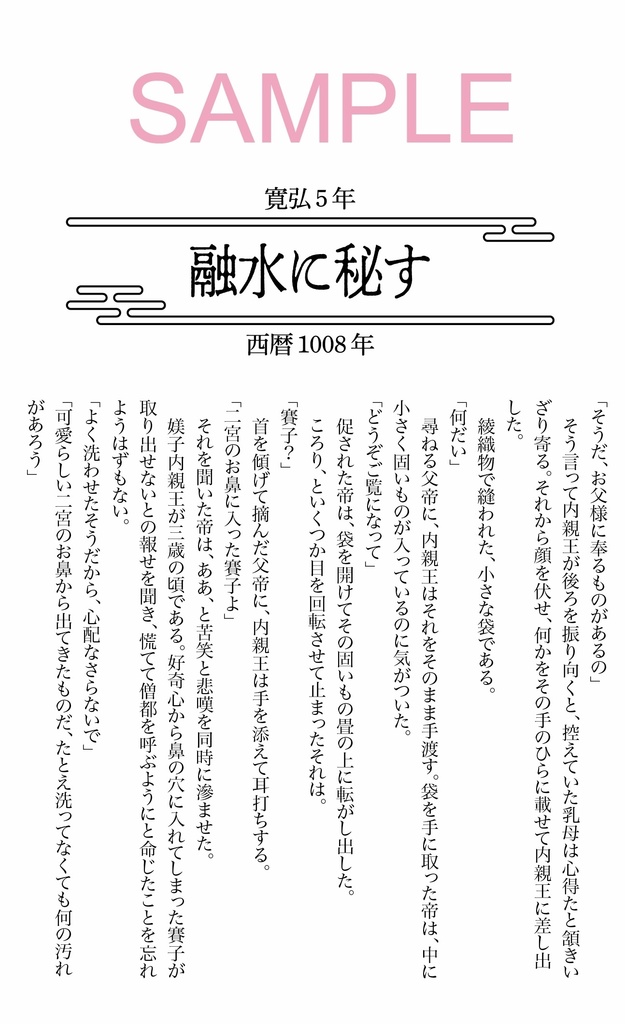 SAMPLE
寛弘5年
融水に秘す
西暦1008年
「そうだ、お父様に奉るものがあるの」
そう言って内親王が後ろを振り向くと、控えていた乳母は心得たと頷きい
ざり寄る。それから顔を伏せ、何かをその手のひらに載せて内親王に差し出
した。
綾織物で縫われた、小さな袋である。
「何だい」
尋ねる父帝に、内親王はそれをそのまま手渡す。袋を手に取った帝は、中に
小さく固いものが入っているのに気がついた。
「どうぞご覧になって」
促された帝は、袋を開けてその固いもの畳の上に転がし出した。
ころり、といくつか目を回転させて止まったそれは。
「賽子？」
首を傾げて摘んだ父帝に、内親王は手を添えて耳打ちする。
「二宮のお鼻に入った賽子よ」
それを聞いた帝は、ああ、と苦笑と悲嘆を同時に滲ませた。
媄子内親王が三歳の頃である。好奇心から鼻の穴に入れてしまった賽子が
取り出せないとの報せを聞き、慌てて僧都を呼ぶようにと命じたことを忘れ
ようはずもない。
「よく洗わせたそうだから、心配なさらないで」
「可愛らしい二宮のお鼻から出てきたものだ、たとえ洗ってなくても何の汚れ
があろう」